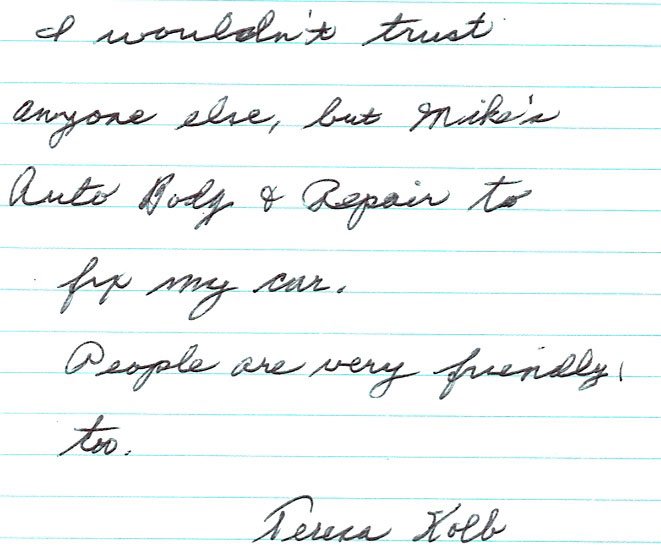 I wouldn't trust
anyone else, but Mike's
Auto Body & Repair to
fix my car.
People are very friendly,
too.
Teresa Kolb